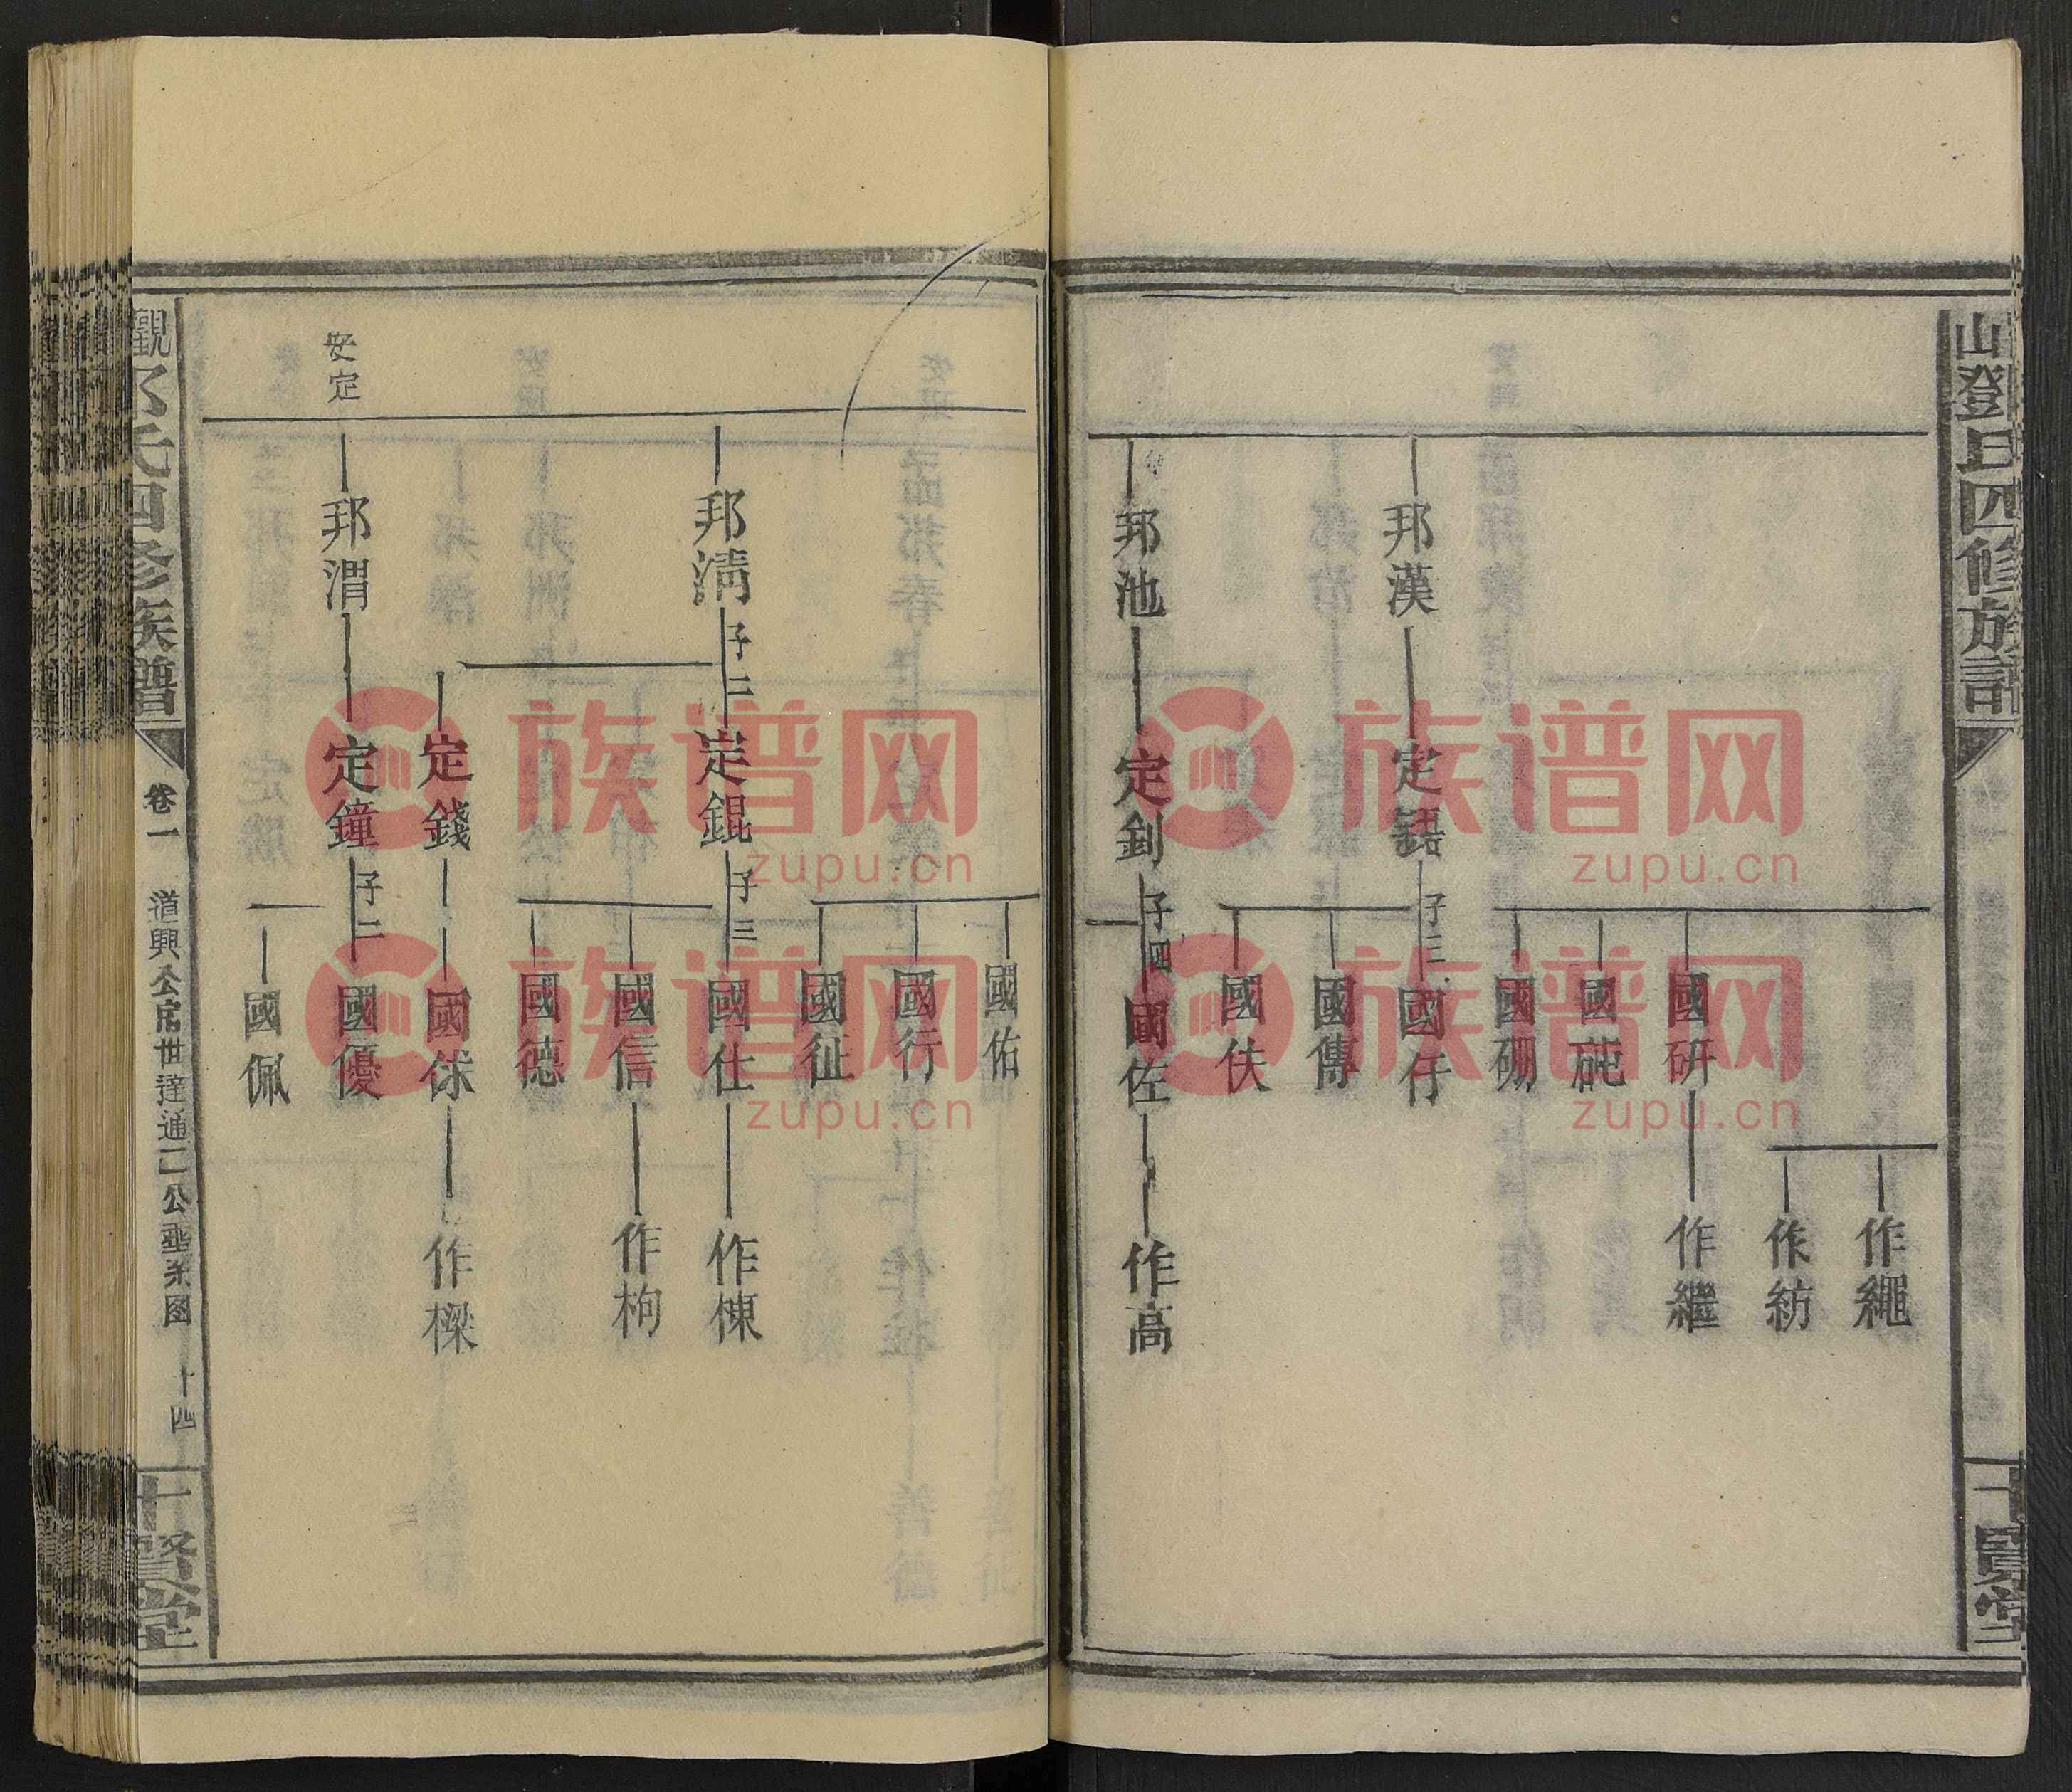 山鄧氏四修族譜
十賢堂
作繩
作紡
國研
作繼
國砘
國硼
邦漢
定鋙
子三
國仔
國傳
國伕
邦池
定釗
子四
國佐
作高
國佑
國行
國征
邦清
子二
定錕
子三
國仕
作棟
國信
作枸
國德
定錢
國俅
作樑
安定
邦渭
定鐘
子二
國優
國佩
觀鄧氏四修族譜
卷一
道興公房世達通二公垂系图
十四
十賢堂
族谱网
zupu.cn
族谱网
zupu.cn
族谱网
zupu.cn
族谱网
zupu.cn